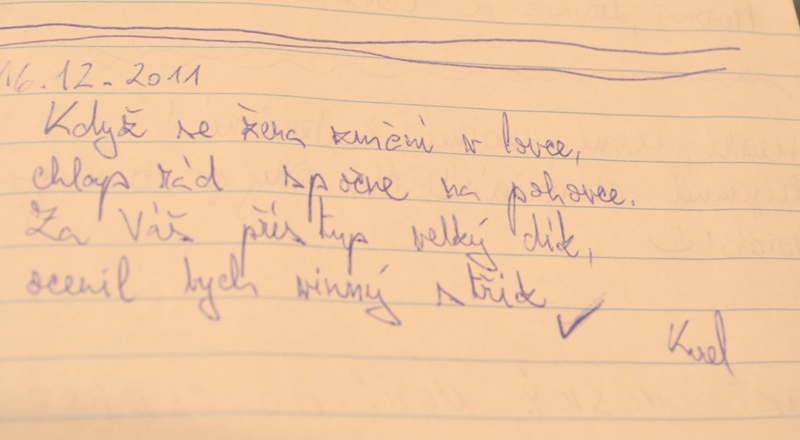 16.12.2011
Když se žena změní v lovce,
chlap rád spočne na pohovce.
Za Váš přístup velký dík,
ocenil bych vinný střik